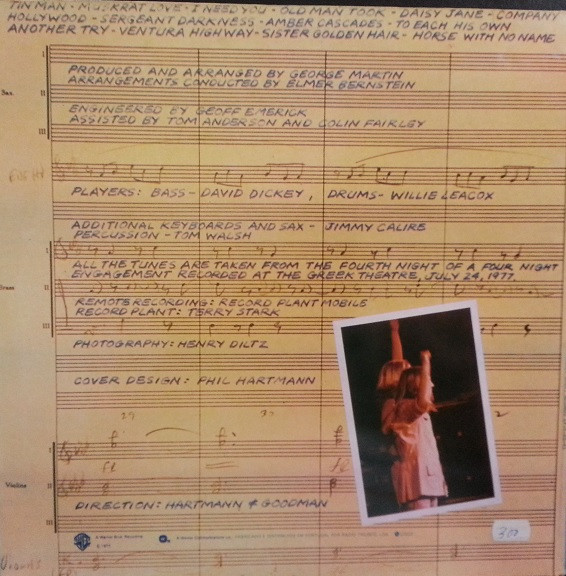 TIN MAN - MUSKRAT LOVE - I NEED YOU - OLD MAN TOOK - DAISY JANE - COMPANY
HOLLYWOOD - SERGEANT DARKNESS - AMBER CASCADES - TO EACH HIS OWN
ANOTHER TRY - VENTURA HIGHWAY - SISTER GOLDEN HAIR - HORSE WITH NO NAME
I
II
III
PRODUCED AND ARRANGED BY GEORGE MARTIN
ARRANGEMENTS CONDUCTED BY ELMER BERNSTEIN
ENGINEERED BY GEOFF EMERICK
ASSISTED BY TOM ANDERSON AND COLIN FAIRLEY
PLAYERS: BASS - DAVID DICKEY, DRUMS - WILLIE LEACOX
ADDITIONAL KEYBOARDS AND SAX - JIMMY CALIRE
PERCUSSION - TOM WALSH
I
II
III
ALL THE TUNES ARE TAKEN FROM THE FOURTH NIGHT OF A FOUR NIGHT
ENGAGEMENT RECORDED AT THE GREEK THEATRE, JULY 24, 1977.
REMOTE RECORDING: RECORD PLANT MOBILE
RECORD PLANT: TERRY STARK
PHOTOGRAPHY: HENRY DILTZ
COVER DESIGN: PHIL HARTMANN
I
II
III
Violins
DIRECTION: HARTMANN & GOODMAN